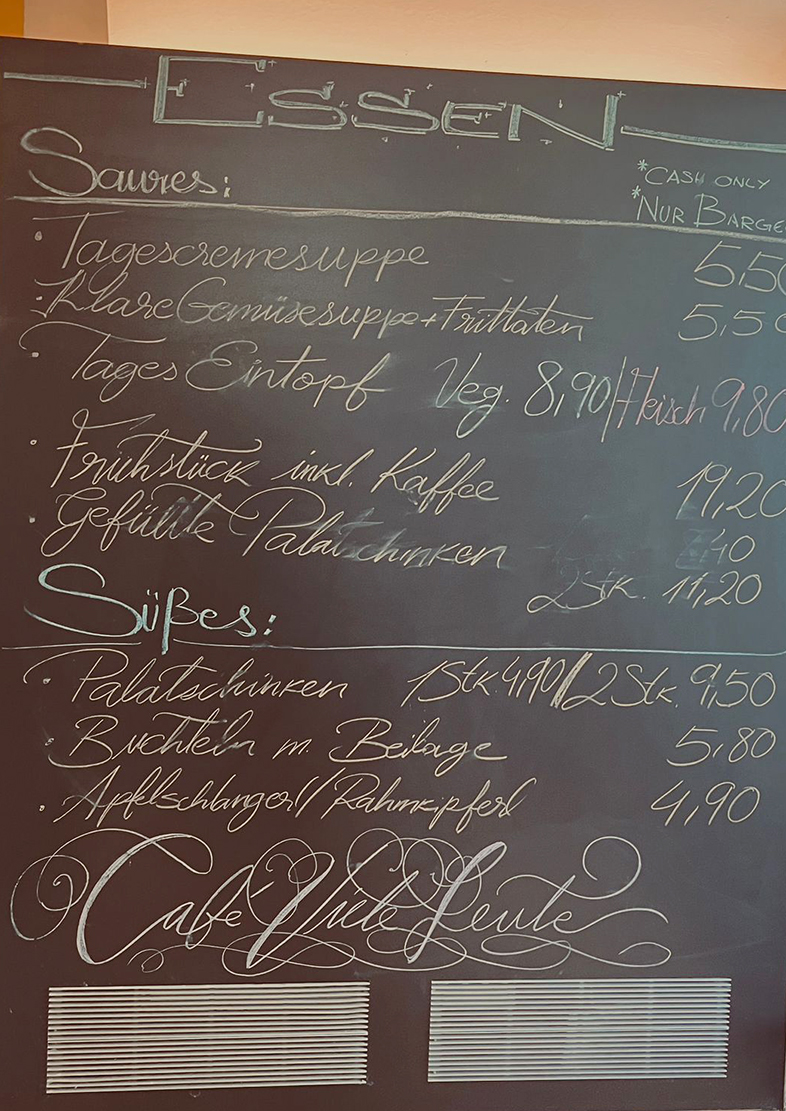 ESSEN
Saures:
*CASH ONLY
*NUR BARGE
· Tagescremesuppe 5,50
· Klare Gemüsesuppe + Frittaten 5,50
· Tages Eintopf Veg. 8,90/Fleisch 9,80
· Frühstück inkl. Kaffee 19,20
· Gefüllte Palatschinken
2 Stk. 11,20
Süßes:
· Palatschinken 1 Stk 4,90//2 Stk. 9,50
· Buchteln m. Beilage 5,80
· Apfelschlangerl/Rahmkipferl 4,90
Café Viele Leute